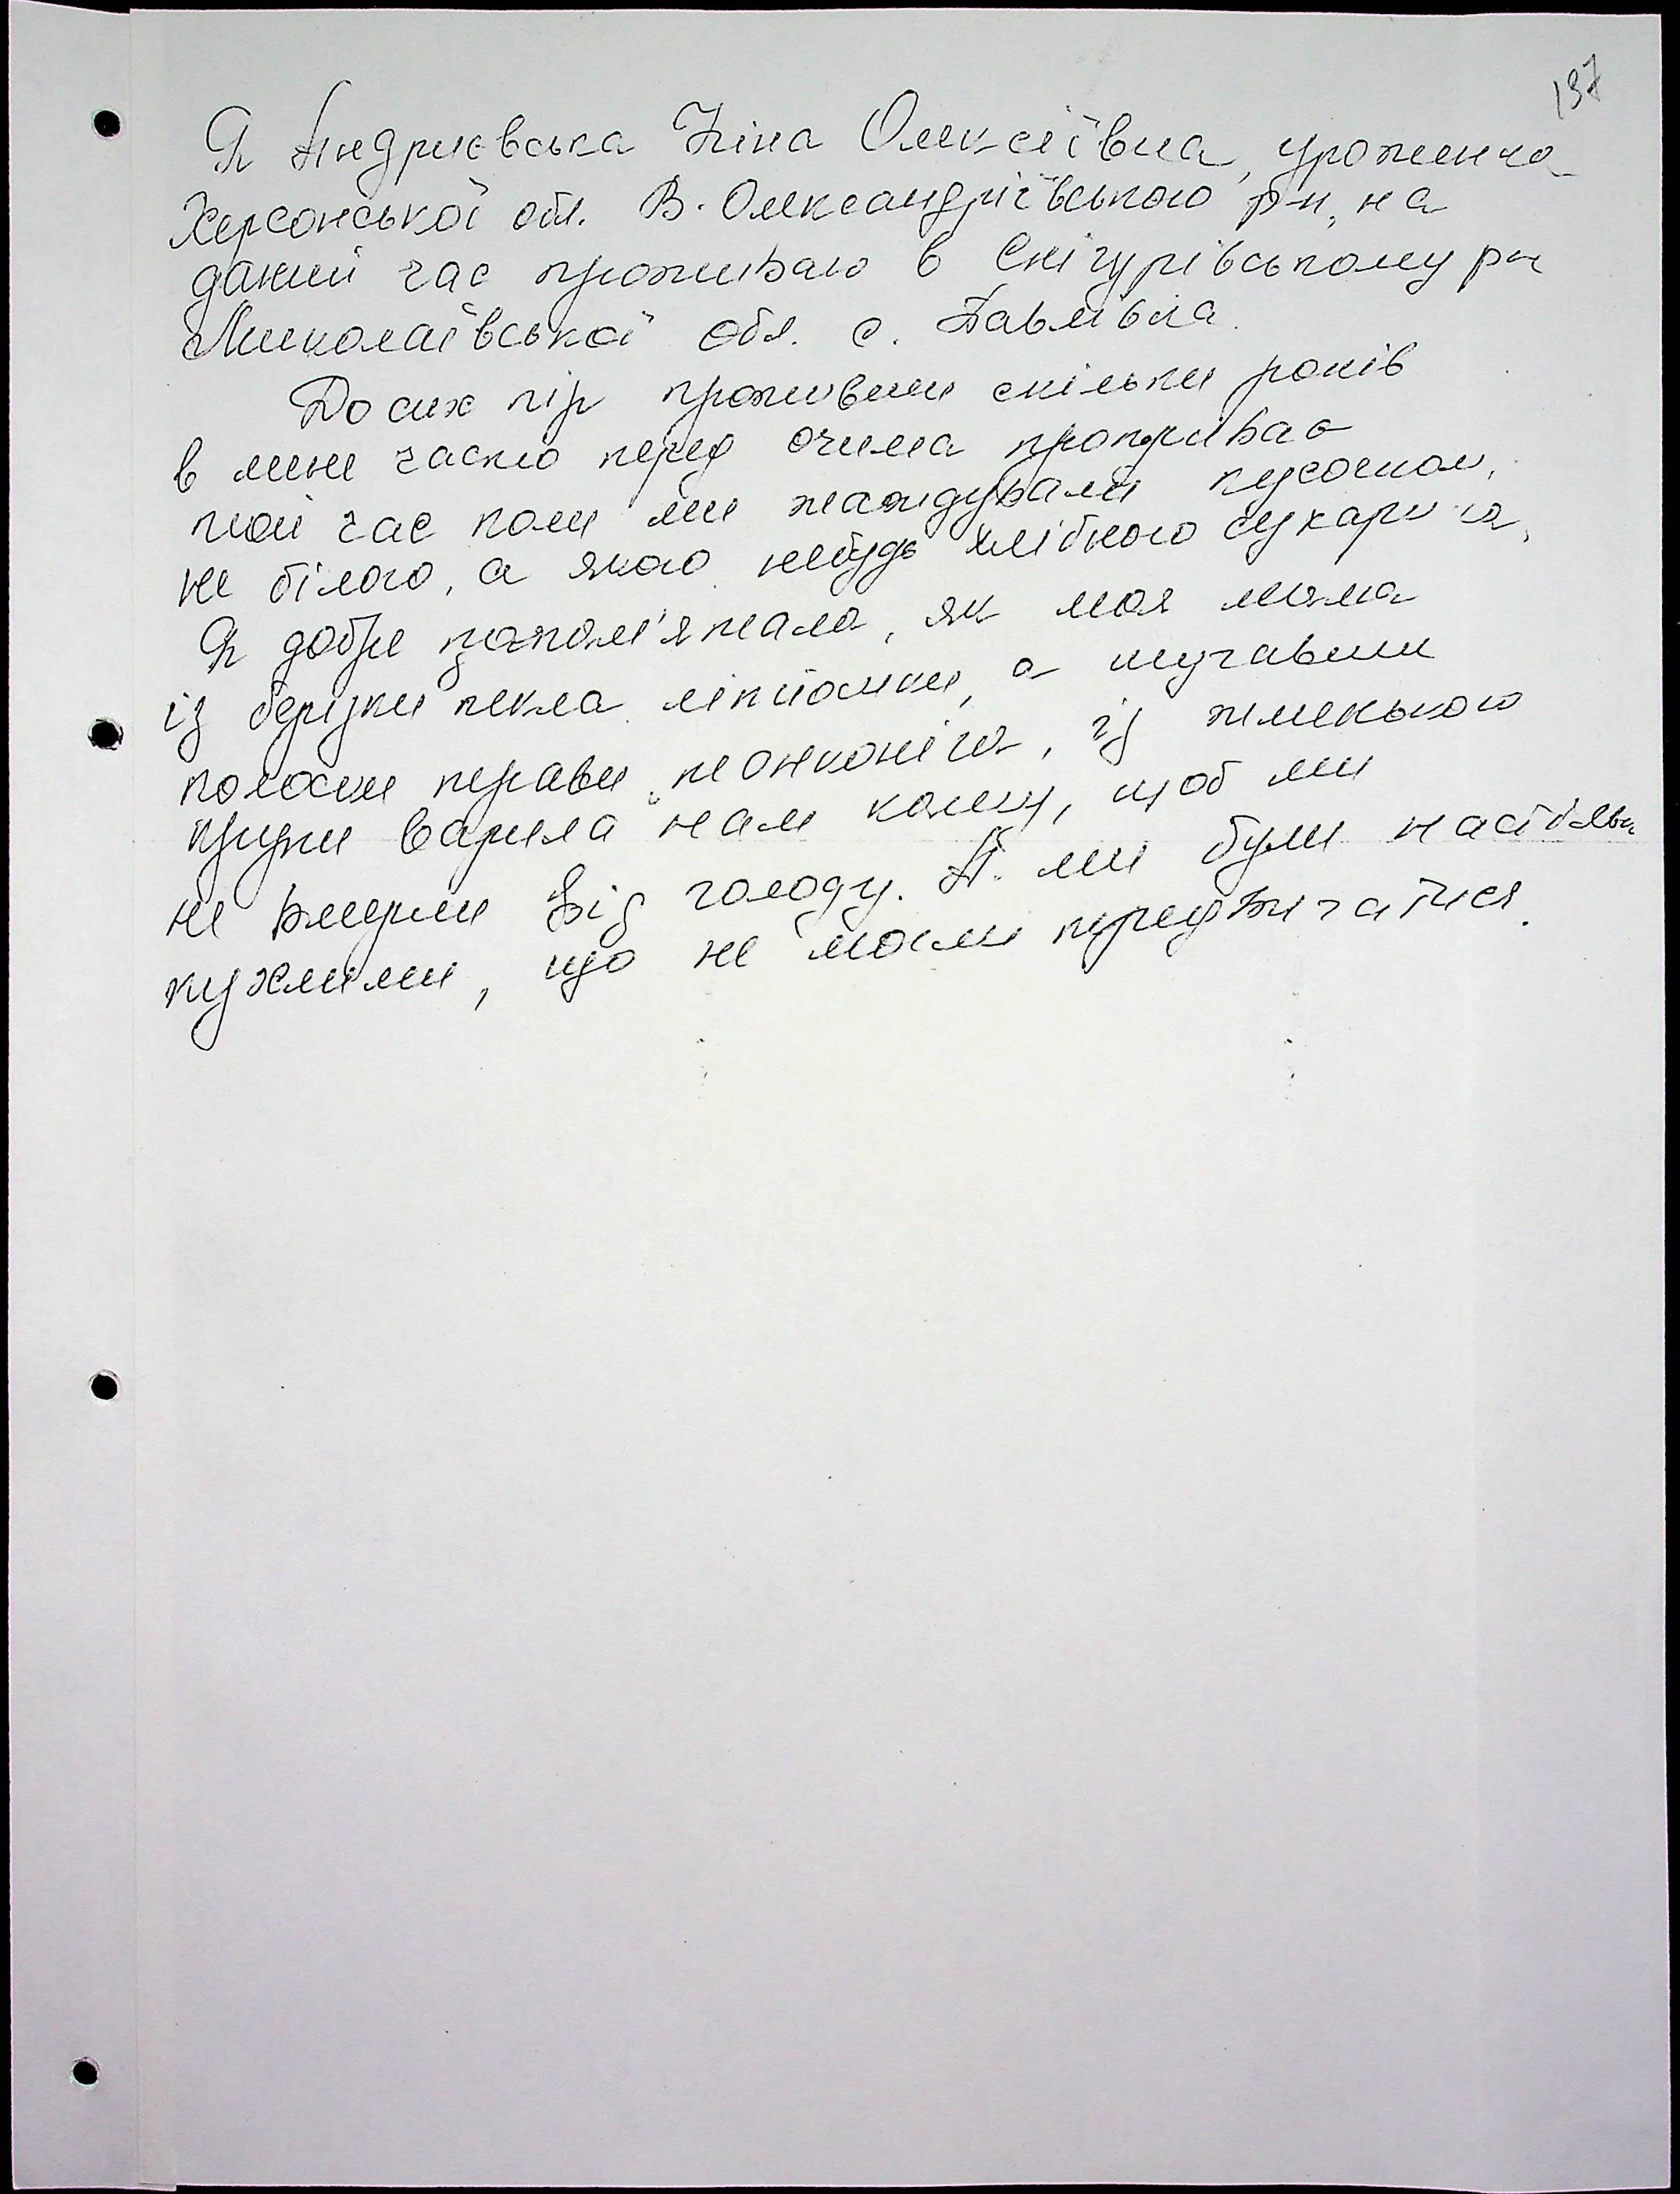 137
Я Андриєвська Ніна Олексіївна, уроженча
Херсонської обл. В. Олександріївського р-н, на
даний час проживаю в Снігурівському р-н
Миколаївської обл. с. Павлівка.
До сих пір проживши скільки років
в мене часто перед очима пропливає
той час коли ми жаждували кусочком,
не білого, а якого небудь хлібного сухарика,
Я добре запам'ятала, як моя мама
із берізки пекла ліпйошки, а
колоски трави тонконіга, із
крупи варила нам кашу, щоб ми
не вмерли від голоду. А ми були настільки
пухлими, що не могли передвигатися.